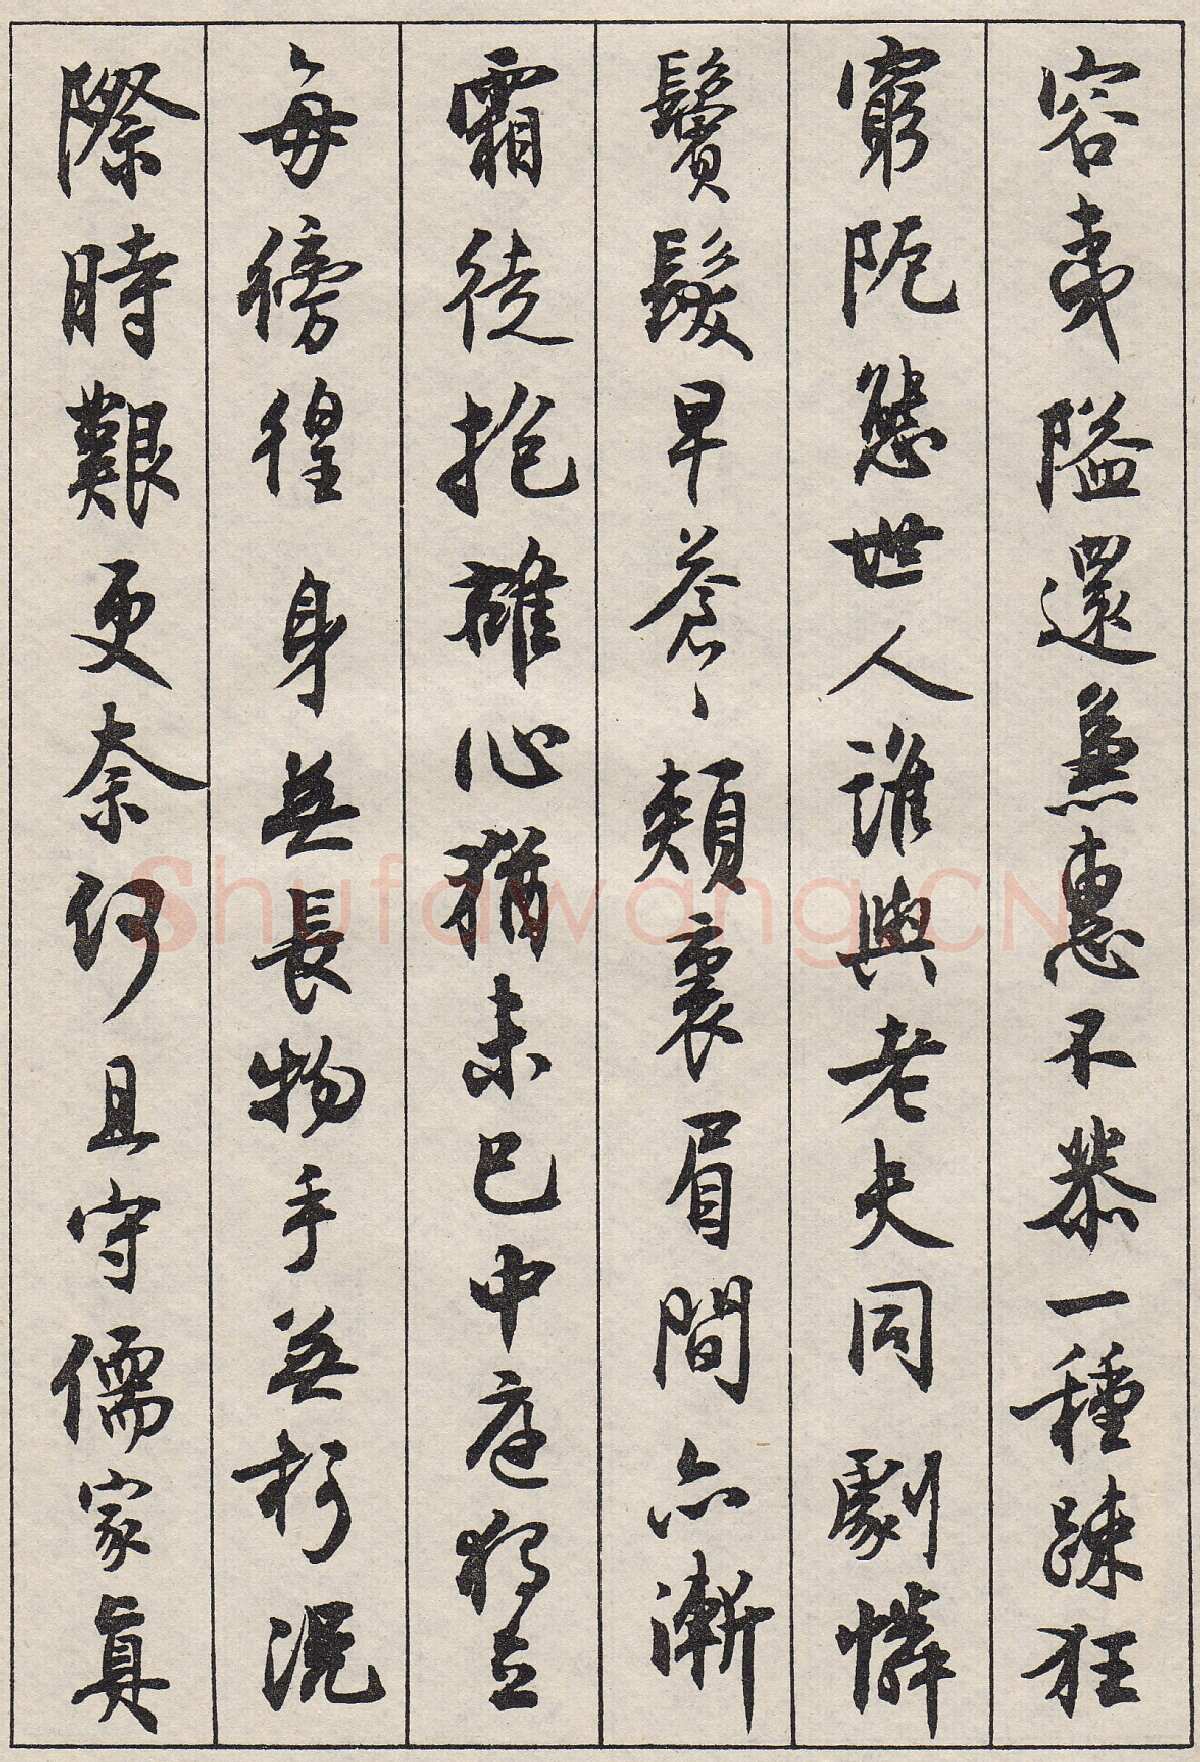 容夷隘還兼惠不恭一種疎狂
窮阨愁世人誰與老夫同劇憐
鬢髮早蒼〻頰裏眉間亦漸
霜徒抱雄心猶未已中庭獨立
每徬徨身無長物手無柯況
際時艱更奈何且守儒家真
Shufawang.CN